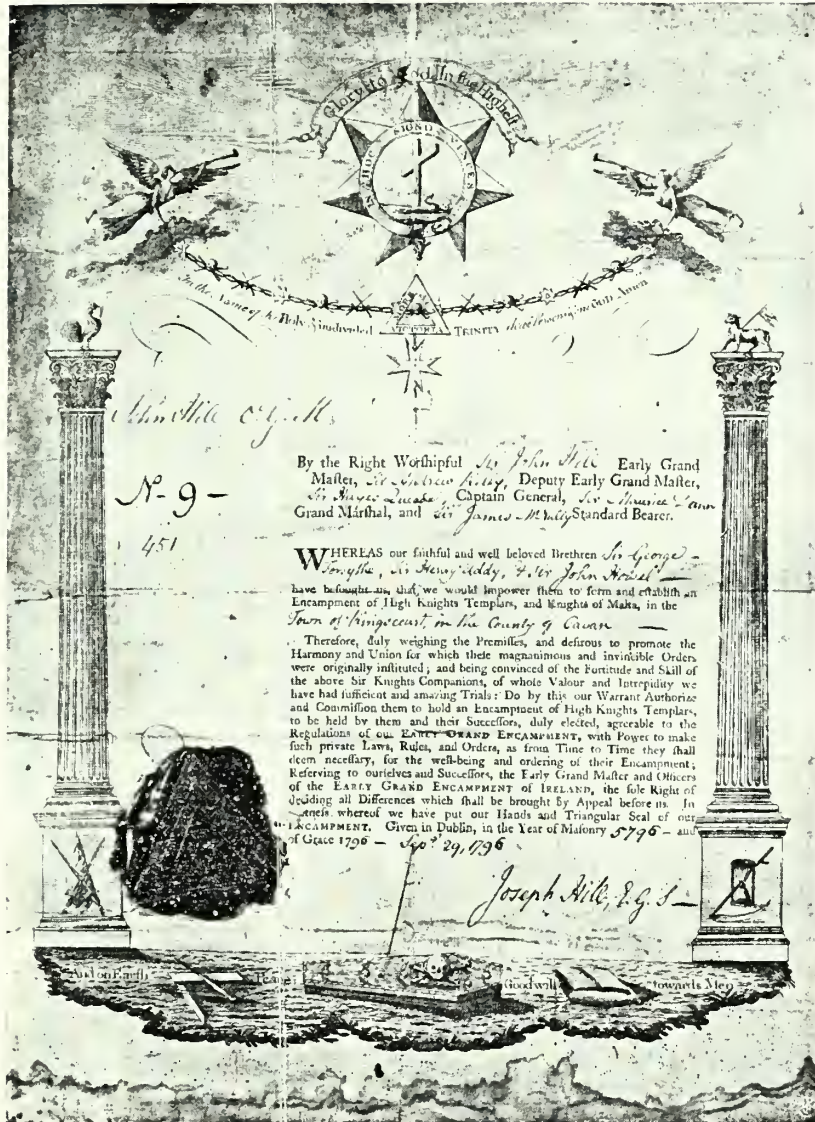 Glory to God In the Highest
IN HOC SIGNO VINCES
In the Name of the Holy & undivided
VICTORIA
TRINITY three Persons one God Amen
N
John Hill E.G.M.
N- 9 -
451
By the Right Worſhipful Sir John Hill Early Grand
Maſter, Sir Andrew Kiley, Deputy Early Grand Maſter,
Sir Hayes Captain General, Sir Maurice
Grand Marſhal, and Sir James Standard Bearer.
WHEREAS our faithful and well beloved Brethren Sir George
Forsythe, Sir Henry Addy, & Sir John
have beſought us, that we would impower them to form and eſtabliſh an
Encampment of High Knights Templars, and Knights of Malta, in the
Town of Kingscourt, in the County of Cavan
Therefore, duly weighing the Premiſſes, and deſirous to promote the
Harmony and Union for which theſe magnanimous and invincible Orders
were originally inſtituted; and being convinced of the Fortitude and Skill of
the above Sir Knights Companions, of whoſe Valour and Intrepidity we
have had ſufficient and amazing Trials: Do by this our Warrant Authorize
and Commiſſion them to hold an Encampment of High Knights Templars,
to be held by them and their Succeſſors, duly elected, agreable to the
Regulations of our EARLY GRAND ENCAMPMENT, with Power to make
ſuch private Laws, Rules, and Orders, as from Time to Time they ſhall
deem neceſſary, for the well-being and ordering of their Encampment;
Referring to ourſelves and Succeſſors, the Early Grand Maſter and Officers
of the EARLY GRAND ENCAMPMENT of IRELAND, the ſole Right of
deciding all Differences which ſhall be brought by Appeal before us. In
whereof we have put our Hands and Triangular Seal of our
ENCAMPMENT. Given in Dublin, in the Year of Maſonry 5796 - and
of Grace 1796 - Sepr. 29, 1796
Joseph Hill, E.G.S
And on Earth Peace Good will towards Men